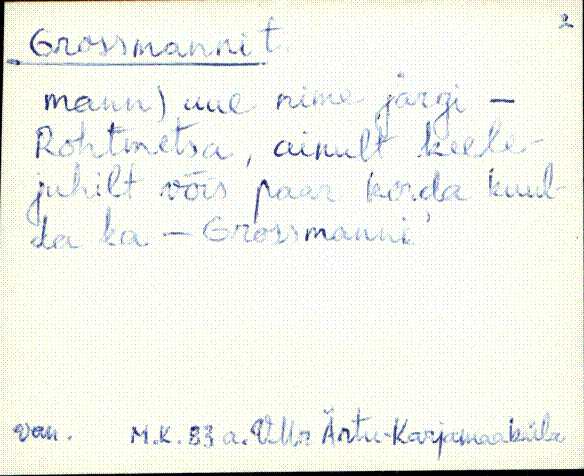 2
Grossmanni t.
mann) uue nime järgi –
Rohtmetsa, ainult keele-
juhilt võis paar korda kuul-
da ka – Grossmanni'
Van. M.K. 83 a. Ärtu-Karjamaaküla